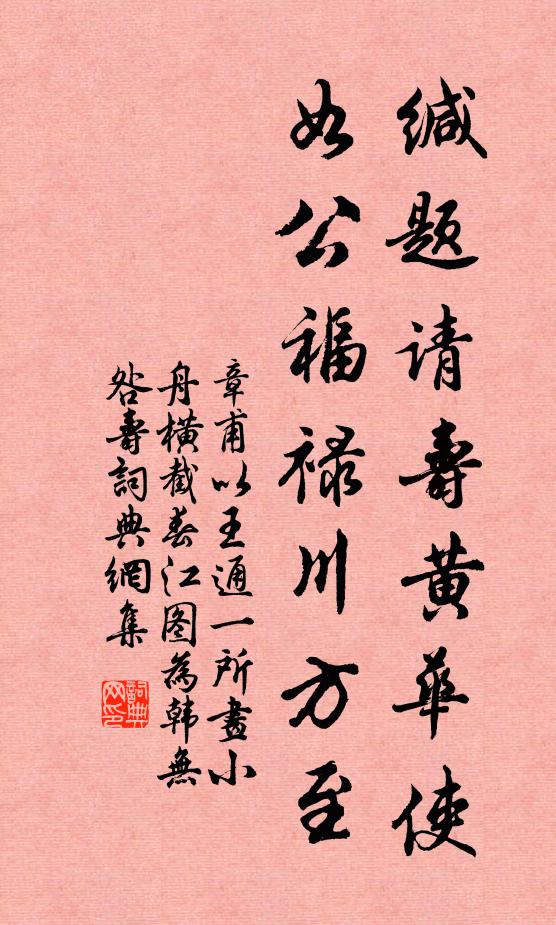 缄题请寿黄华使
如公福禄川方至
章甫以王通一所画小
舟横截春江图为韩无
咎寿词典网集
词典网印